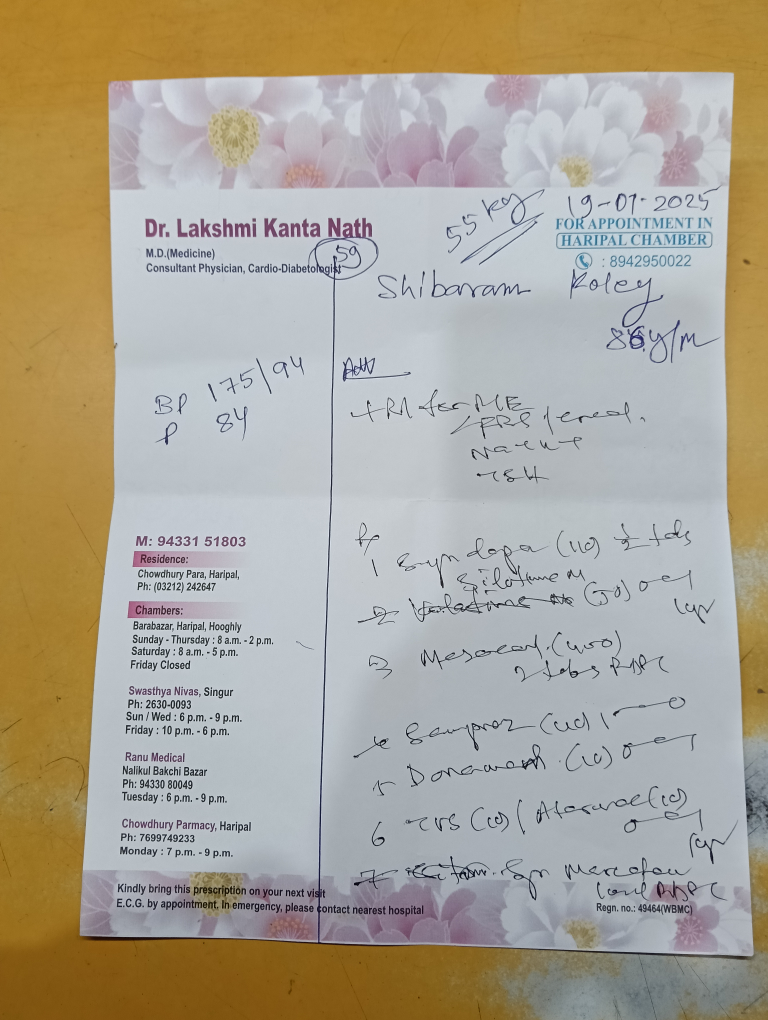 55 kg
19-07-2025
Dr. Lakshmi Kanta Nath
M.D.(Medicine)
Consultant Physician, Cardio-Diabetologist
59
FOR APPOINTMENT IN
HARIPAL CHAMBER
: 8942950022
Shibaram Koley
86y/m
BP 175/94
P 84
Adv
FBS / creat.
Na+ K+
TSH
M: 94331 51803
Residence:
Chowdhury Para, Haripal,
Ph: (03212) 242647
Chambers:
Barabazar, Haripal, Hooghly
Sunday - Thursday : 8 a.m. - 2 p.m.
Saturday : 8 a.m. - 5 p.m.
Friday Closed
Swasthya Nivas, Singur
Ph: 2630-0093
Sun / Wed : 6 p.m. - 9 p.m.
Friday : 10 p.m. - 6 p.m.
Ranu Medical
Nalikul Bakchi Bazar
Ph: 94330 80049
Tuesday : 6 p.m. - 9 p.m.
Chowdhury Parmacy, Haripal
Ph: 7699749233
Monday : 7 p.m. - 9 p.m.
1 Syndopa (110) 1/2 tds
2 (50)
3 Mesacol (400)
2 tabs
(40) 1
5 (10)
6 (10) / (10)
7 Syp
Kindly bring this prescription on your next visit
E.C.G. by appointment. In emergency, please contact nearest hospital
Regn. no.: 49464(WBMC)